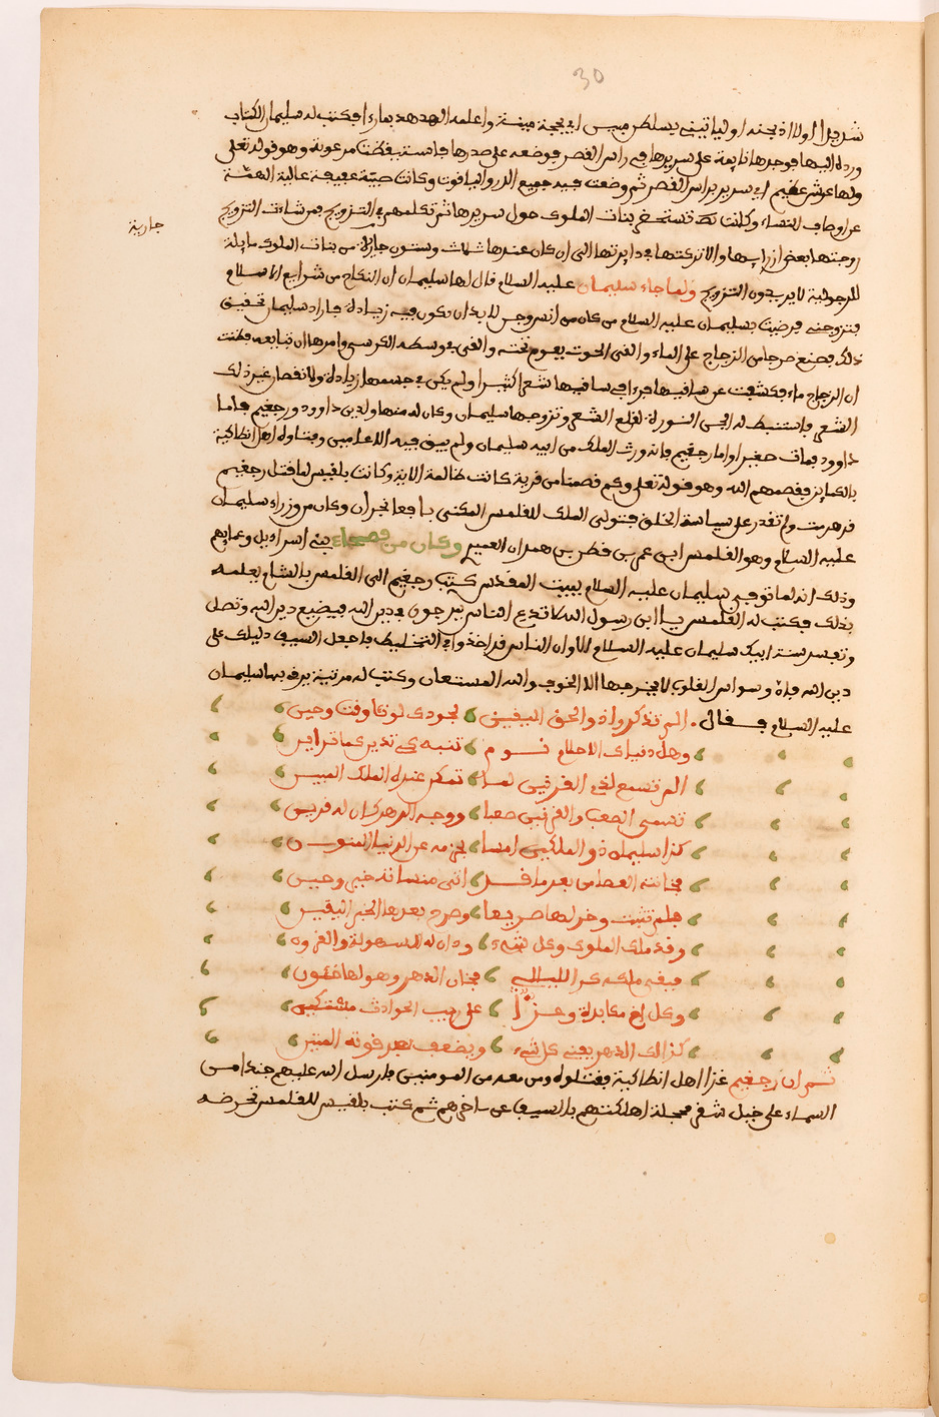 30
شديدا اولا اذبحنه او لياتيني بسلطن مبين اي بحجة مبينة واعلمه الهدهد بما رءا فكتب له سليمان الكتاب
ورده اليها فوجدها نايمة على سريرها في راس القصر فوضعه على صدرها فاستيقظت مرعوبة وهو قوله تعلى
ولها عرش عظيم اي سرير براس القصر ثم وضعت فيه جميع الدر والياقوت وكانت صبية عفيفة عالية الهمة
عن اوصاف النساء وكانت تستحضر بنات الملوك حول سريرها ثم تكلمهم في التزويج فمن شاءت التزويج
جارية
زوجتها بعض والا تركتها في دايرتها الى ان كان عندها ثلاث وستون جارية من بنات الملوك مايلة
للرجولية لا يريدون التزويج ولما جاء سليمان عليه السلام قال لها سليمان ان النكاح من شرايع الاسلام
فتزوجني فرضيت بسليمان عليه السلام من كان من انس وجن لا بد ان يكون فيه زيادة فاراد سليمان تحقيق
ذلك فصنع صرحا من الزجاج على الماء والقى الحوت يعوم تحته والقى في وسطه الكرسي وامرها ان فظنت
ان الزجاج ماء فكشفت عن ساقيها فرءا في ساقيها شعرا كثيرا ولم يكن في جسمها زيادة ولا نقصان غير ذلك
الشعر فاستنبط له الجن النورة لقلع الشعر وتزوجها سليمان وكان له منها ولدين داوود ورجعيم فاما
داوود فمات صغيرا واما رجعيم فانه ورث الملك من ابيه سليمان ولم يبق فيه الا عامين وقتلوه اهل انطاكية
فقصمهم الله وهو قوله تعلى وكم قصمنا من قرية كانت ظالمة الاية وكانت بلقيس لما قتل رجعيم
قد هرمت ولم تقدر على سياسة الخلق فتولى الملك للقلمس المكنى بافعا نجران وكان من وزراء سليمان
عليه السلام وهو القلمس ابن عمر بن قطن بن همدان الحميري وكان من فصحاء بني اسراءيل وعمايهم
وذلك انه لما توفي سليمان عليه السلام ببيت المقدس كتب رجعيم الى القلمس بالشام يعلمه
بذلك فكتب له القلمس يا ابن رسول الله لا تدع الناس يمرجون في دين الله فيضيع دين الله وتضل
وتفسد سنة ابيك سليمان عليه السلام الا وان الناس قد اخذوا في التخليط فاجعل السيف دليلك على
دين الله فان وسواس القلوب لا يخرجها الا الخوف والله المستعان وكتب له مرثية يرثي بها سليمان
عليه السلام فقال . الم تذكر واذ والحق اليقين لجودك لو ثاوقت وحين
وهل دنياك الا حلم نوم تنبه كي تدير
الم تسمع لذي القرنين لما تمكن عنده الملك المبين
تسمى الصعب والقرنين صعبا ووجه الدهر كان له قرين
كذا سليمان ذو الملكين امسا عن الدنيا المنون
فخانته العصا من بعد ما انثى منسانه حين وحين
فلم تثبت وخر لها صريعا وصرح بعدها الخبر اليقين
وقد ملك الملوك وكل شيء ودان له السهولة والحزون
ملكه كر الليالي فخان الدهر وهو لها خئون
وكل اخ مكابدة وعزا على ريب الحوادث مستكين
كذاك الدهر يفني كل شيء ويضعف بعد قوته المتين
ثم ان رجعيم غزا اهل انطاكية فقتلوه ومن معه من المومنين فارسل الله عليهم جندا من
السماء على خيل شقر محجلة اهلكتهم بالسيف عن ساخرهم ثم كتبت بلقيس للقلمس تحرضه